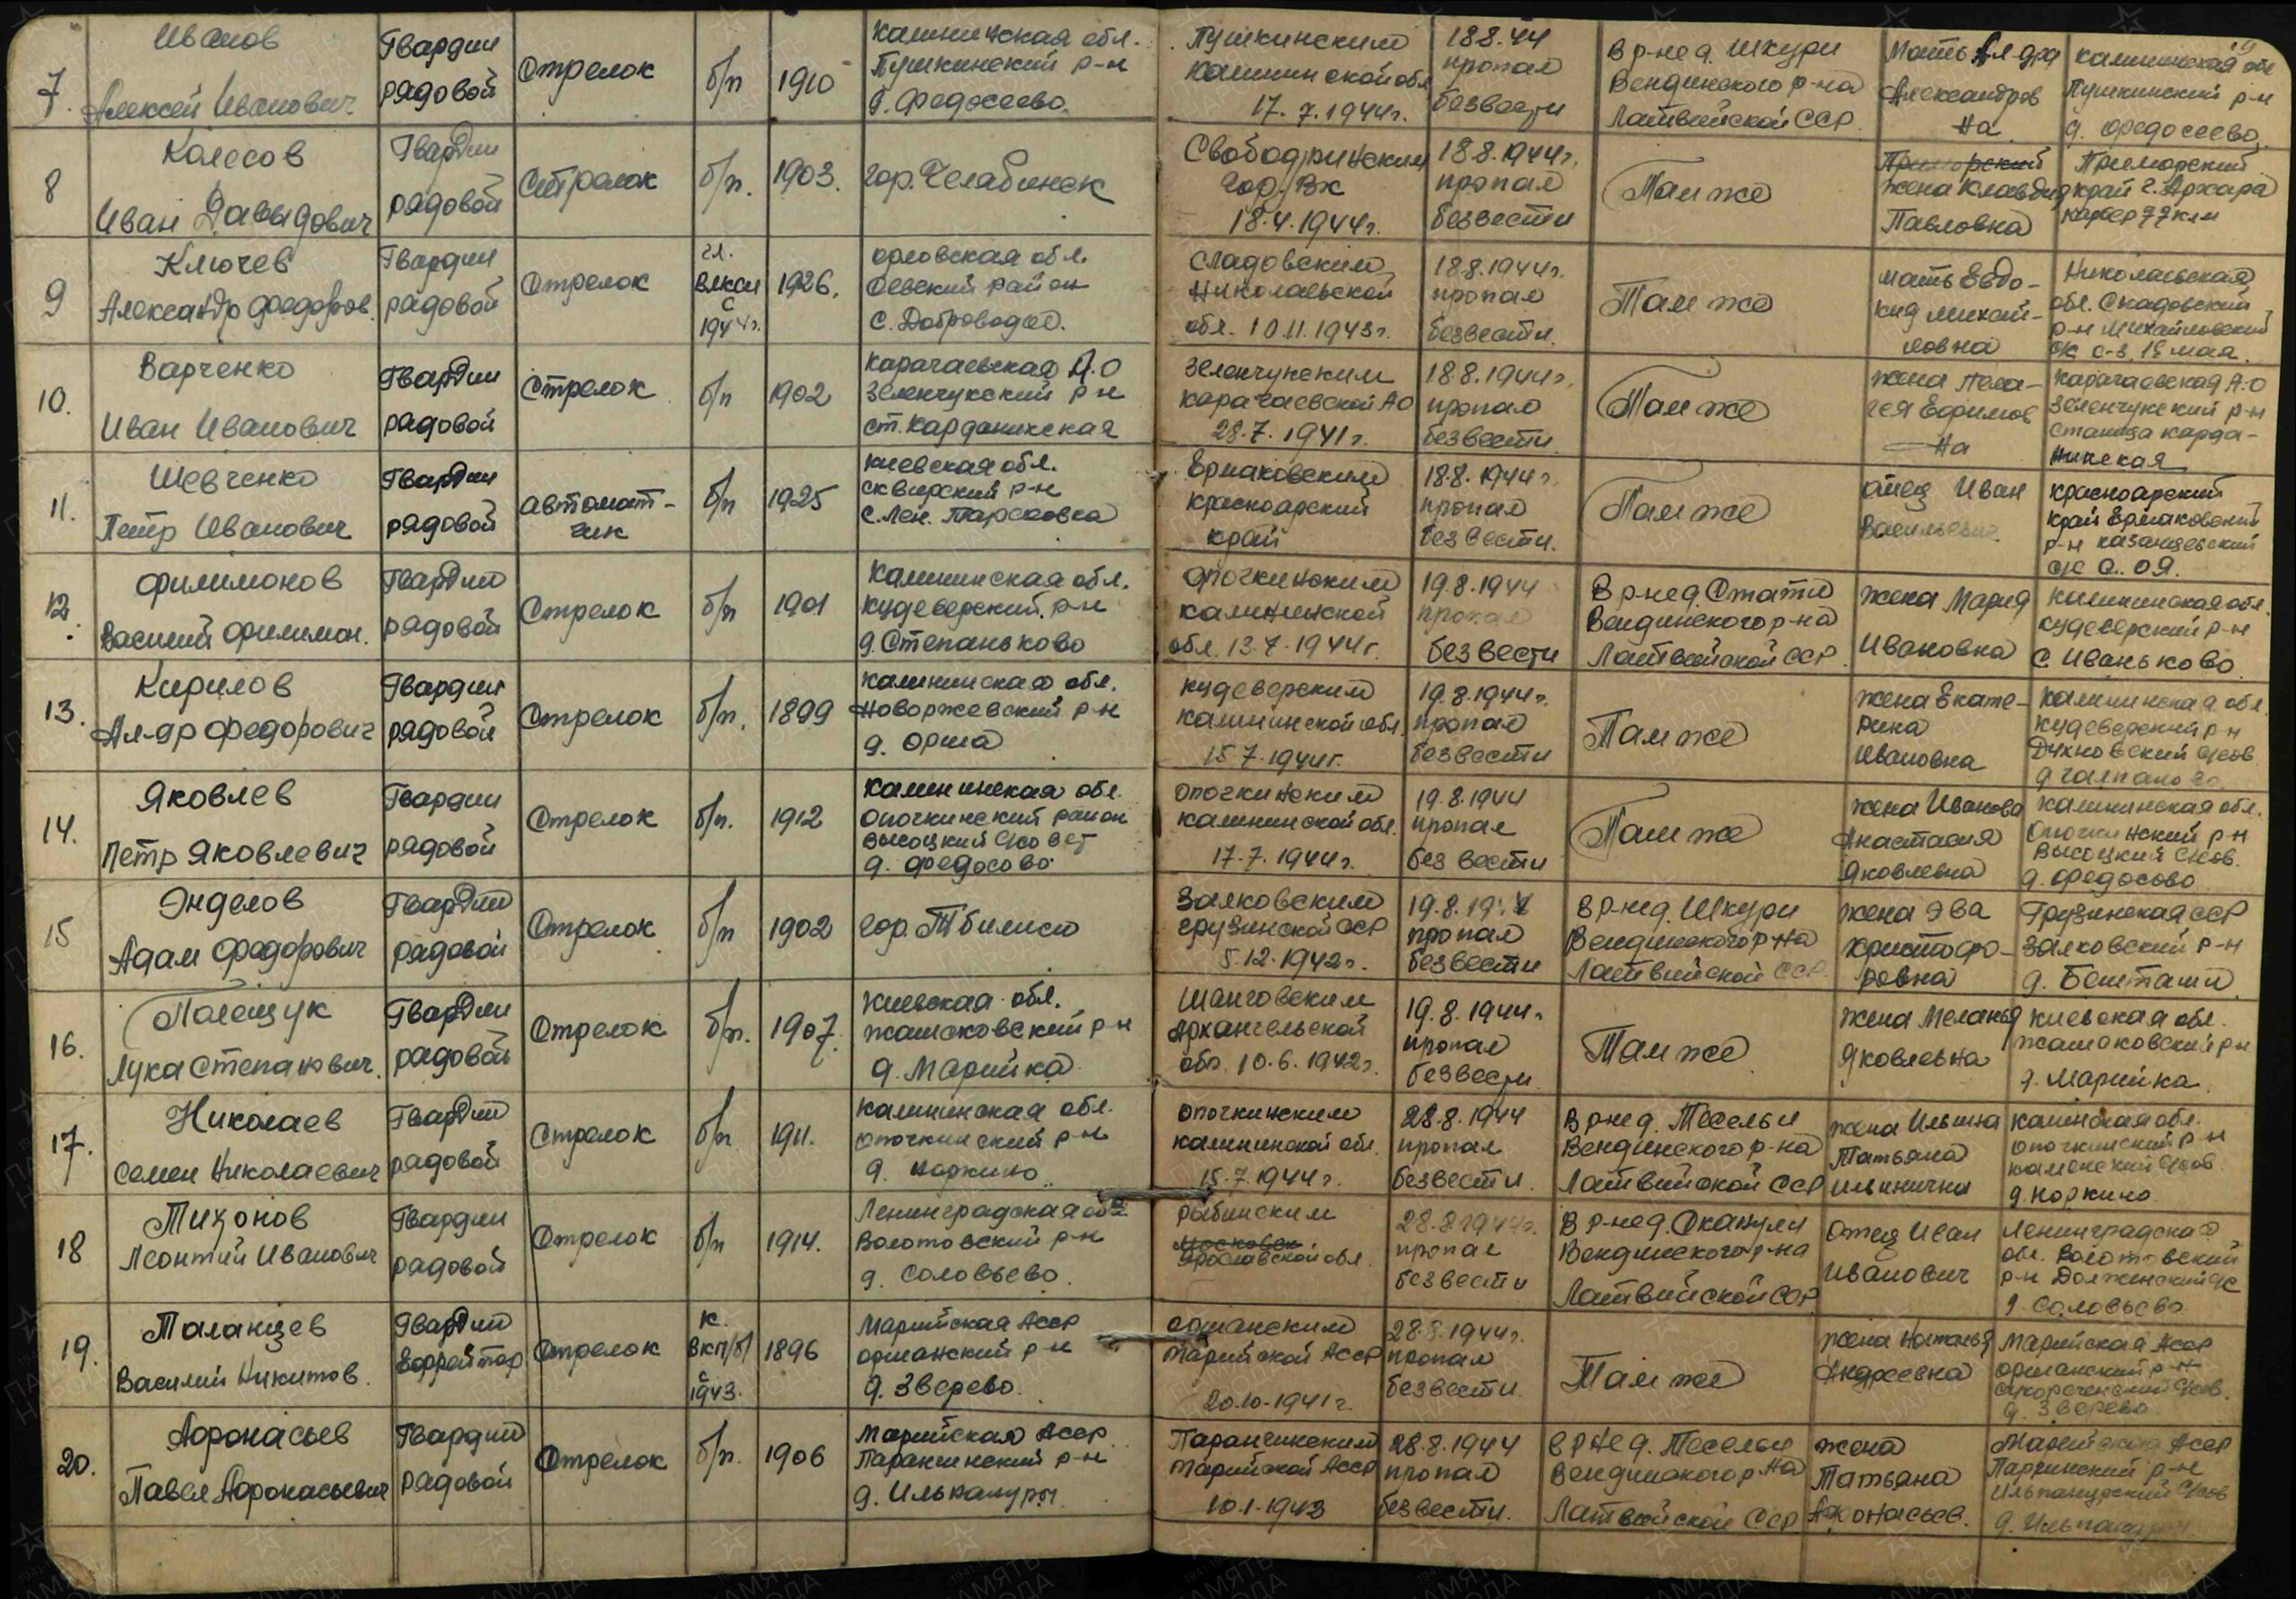 7. Иванов Алексей Иванович
Гвардии рядовой
Стрелок
б/п
1910
Калининская обл. Пушкинский р-н д. Федосеево.
Пушкинским Калининской обл 17.7.1944г.
18.8.44 пропал без вести
В р-не д. Шкури Вендинского р-на Латвийской ССР.
Мать Ал-дра Александров на
Калининская обл Пушкинский р-н д. Федосеево.
8 Колесов Иван Давыдович
Гвардии рядовой
Стрелок
б/п.
1903.
гор. Челябинск
гор. ВК 18.4.1944г.
18.8.1944г. пропал без вести
Там же
жена Клавдия Павловна
Приморский край г. Архара карьер 77 км
9 Ключев Александр Федоров.
Гвардии рядовой
Стрелок
чл. ВЛКСМ с 1944г.
1926.
Орловская обл. Севский район с. Доброводье.
Сладовским Николаевской обл. 10.11.1943г.
18.8.1944г. пропал без вести.
Там же
мать Евдо- кия Михай- ловна
Николаевская обл. Скадовский р-н Михайловский с/с с-з, 1е мая.
10. Варченко Иван Иванович
Гвардии рядовой
Стрелок
б/п
1902
Карачаевская А.О Зеленчукский р-н ст. Кардоникская
Зеленчукским Карачаевской АО 28.7.1941г.
18.8.1944г. пропал без вести.
Там же
жена Пела- гея Ефимов на
Карачаевская А.О Зеленчукский р-н станица Кардо- никская
11. Шевченко Петр Иванович
Гвардии рядовой
автомат- чик
б/п
1925
Киевская обл. Сквирский р-н с. Лен. Тарасовка
Ермаковским Красноарский край
18.8.1944г. пропал без вести.
Там же
отец Иван Васильевич
Красноарский край Ермаковский р-н Казанцевский
12. Филимонов Василий Филимон.
Гвардии рядовой
Стрелок
б/п
1901
Калининская обл. Кудеверский р-н д. Степаньково
Опочкинским Калининской обл. 13.7.1944г.
19.8.1944 пропал без вести
В р-не д. Стати Вендинского р-на Латвийской ССР.
жена Мария Ивановна
Калининская обл. Кудеверский р-н с. Иваньково
13. Кирилов Ал-др Федорович
Гвардии рядовой
Стрелок
б/п.
1899
Калининская обл. Новоржевский р-н д. Орша
Кудеверским Калининской обл. 15.7.1944г.
19.8.1944г. пропал без вести
Там же
жена Екате- рина Ивановна
Калининская обл. Кудеверский р-н Духновский с/сов
14. Яковлев Петр Яковлевич
Гвардии рядовой
Стрелок
б/п.
1912
Калининская обл. Опочкинский район Высоцкий с/совет д. Федосово
Опочкинским Калининской обл. 17.7.1944г.
19.8.1944 пропал без вести
Там же
жена Иванова Анастасия Яковлевна
Калининская обл. Опочкинский р-н Высоцкий с/сов. д. Федосово
15 Энделов Адам Федорович
Гвардии рядовой
Стрелок
б/п
1902
гор. Тбилиси
Залковским Грузинской ССР 5.12.1942г.
пропал без вести
В р-не д. Шкури Вендинского р-на Латвийской ССР
жена Эва Христофо- ровна
Грузинская ССР Залковский р-н д. Бешташи
16. Полещук Лука Степанович.
Гвардии рядовой
Стрелок
б/п.
1907.
Киевская обл. Жашковский р-н д. Марийка
Шанговским Архангельской обл. 10.6.1942г.
19.8.1944г. пропал без вести
Там же
жена Меланья Яковлевна
Киевская обл. Жашковский р-н д. Марийка.
17. Николаев Семен Николаевич
Гвардии рядовой
Стрелок
б/п
1911.
Калининская обл. Опочкинский р-н д. Норкино
Опочкинским Калининской обл. 15.7.1944г.
28.8.1944 пропал без вести.
В р-не д. Тесельи Вендинского р-на Латвийской ССР
жена Ильина Татьяна Ильинична
Опочкинский р-н Каменский с/сов. д. Норкино
18 Тихонов Леонтий Иванович
Гвардии рядовой
Стрелок
б/п
1914.
Ленинградская обл Волотовский р-н д. Соловьево.
Рыбинским Ярославской обл.
28.8.1944г. пропал без вести
В р-не д. Сканули Вендинского р-на Латвийской ССР
Отец Иван Иванович
Ленинградская обл. Волотовский р-н Должинский с/с д. Соловьево
19. Таланцев Василий Никитов.
Гвардии Ефрейтор
Стрелок
к. ВКП/б/ с 1943.
1896
Марийская АССР Оршанский р-н д. Зверево.
Оршанским Марийской АССР 20.10.1941г.
28.8.1944г. пропал без вести.
Там же
жена Наталья Андреевна
Марийская АССР Оршанский р-н с/сов. д. Зверево
20. Афонасьев Павел Афонасьевич
Гвардии рядовой
Стрелок
б/п.
1906
Марийская АССР Параньгинский р-н д. Ильпануры.
Параньгинским Марийской АССР 10.1.1943
28.8.1944 пропал без вести.
В р-не д. Тесельи Вендинского р-на Латвийской ССР
жена Татьяна Афонасьев.
Марийская АССР р-н Ильпанурский с/сов д. Ильпануры